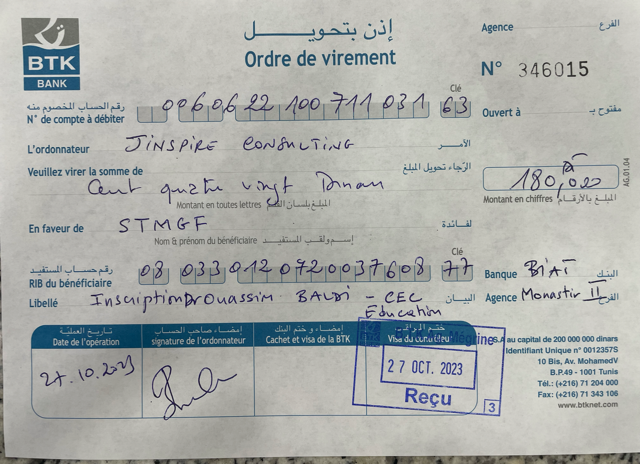 إذن بتحويل
Ordre de virement
Agence الفرع
N° 346015
BTK
BANK
رقم الحساب المخصوم منه
N° de compte à débiter 0060622100711031 Clé 63
Ouvert à مفتوح بـ
L'ordonnateur JINSPIRE CONSULTING الآمـر
Veuillez virer la somme de الرّجاء تحويل المبلغ
Cent quatre vingt Dinars
180,000
Montant en toutes lettres
Montant en chiffres المبلغ بالأرقام
AG.01.04
En faveur de STMGF لفـائدة
Nom & prénom du bénéficiaire إسم ولقب المستفيد
رقم حساب المستفيد
RIB du bénéficiaire 08 033 012 0720037608 Clé 77
Banque BIAT البنك
Libellé Inscription Ouassim BALDI - CEC Education البيان
Agence Monastir II الفرع
تاريخ العمليّة
Date de l'opération
إمضاء صاحب الحساب
signature de l'ordonnateur
إمضاء و ختم البنك
Cachet et visa de la BTK
ختم المراقب
Visa du contrôleur
Mégrine
27.10.2023
27 OCT. 2023
Reçu
3
S.A au capital de 200 000 000 dinars
Identifiant Unique n° 0012357S
10 Bis, Av. MohamedV
B.P.49 - 1001 Tunis
Tél.: (+216) 71 204 000
Fax: (+216) 71 343 106
www.btknet.com